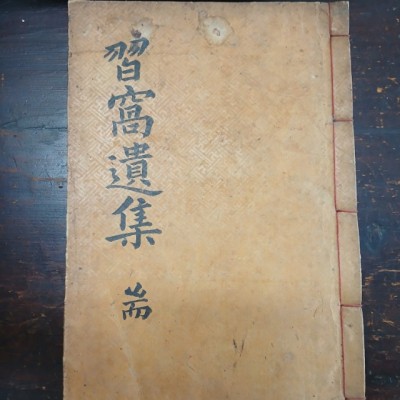 習窩遺集 耑